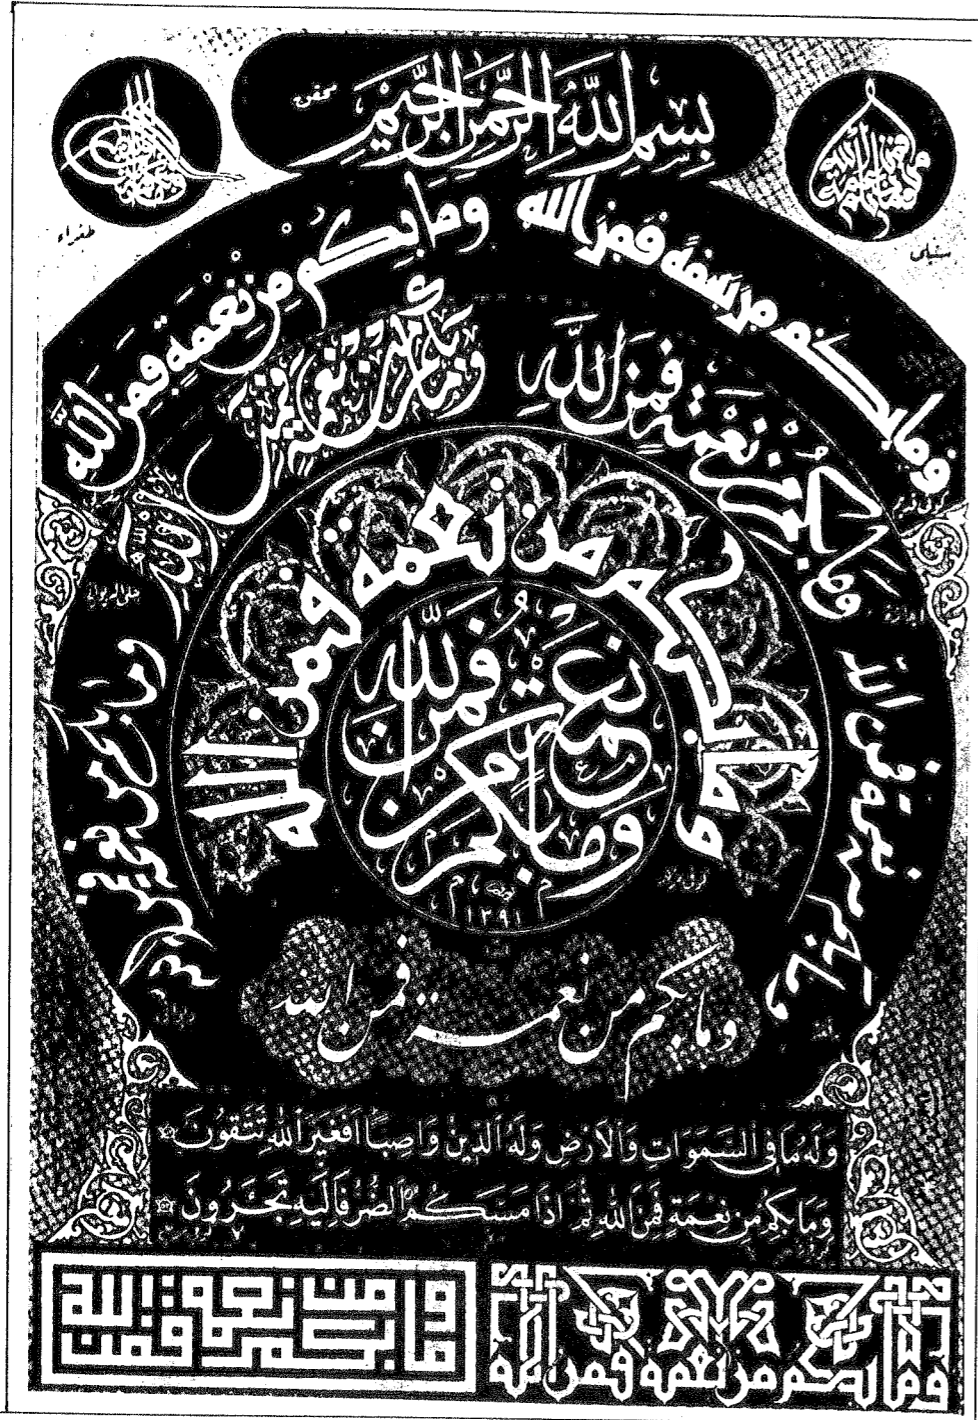 بِسْمِ اللَّهِ الرَّحْمَٰنِ الرَّحِيمِ
سنبلي
طغراء
وما بكم من نعمة فمن الله
وما بكم من نعمة فمن الله
وما بكم من نعمة فمن الله
وما بكم من نعمة فمن الله
وما بكم من نعمة فمن الله
وما بكم من نعمة فمن الله
وما بكم من نعمة فمن الله
وما بكم من نعمة فمن الله
١٣٩١
وما بكم من نعمة فمن الله
وَلَهُ مَا فِي السَّمَوَاتِ وَالْأَرْضِ وَلَهُ الدِّينُ وَاصِبًا أَفَغَيْرَ اللَّهِ تَتَّقُونَ
وَمَا بِكُمْ مِنْ نِعْمَةٍ فَمِنَ اللَّهِ ثُمَّ إِذَا مَسَّكُمُ الضُّرُّ فَإِلَيْهِ تَجْأَرُونَ
وما بكم من نعمة فمن الله
وما بكم من نعمة فمن الله